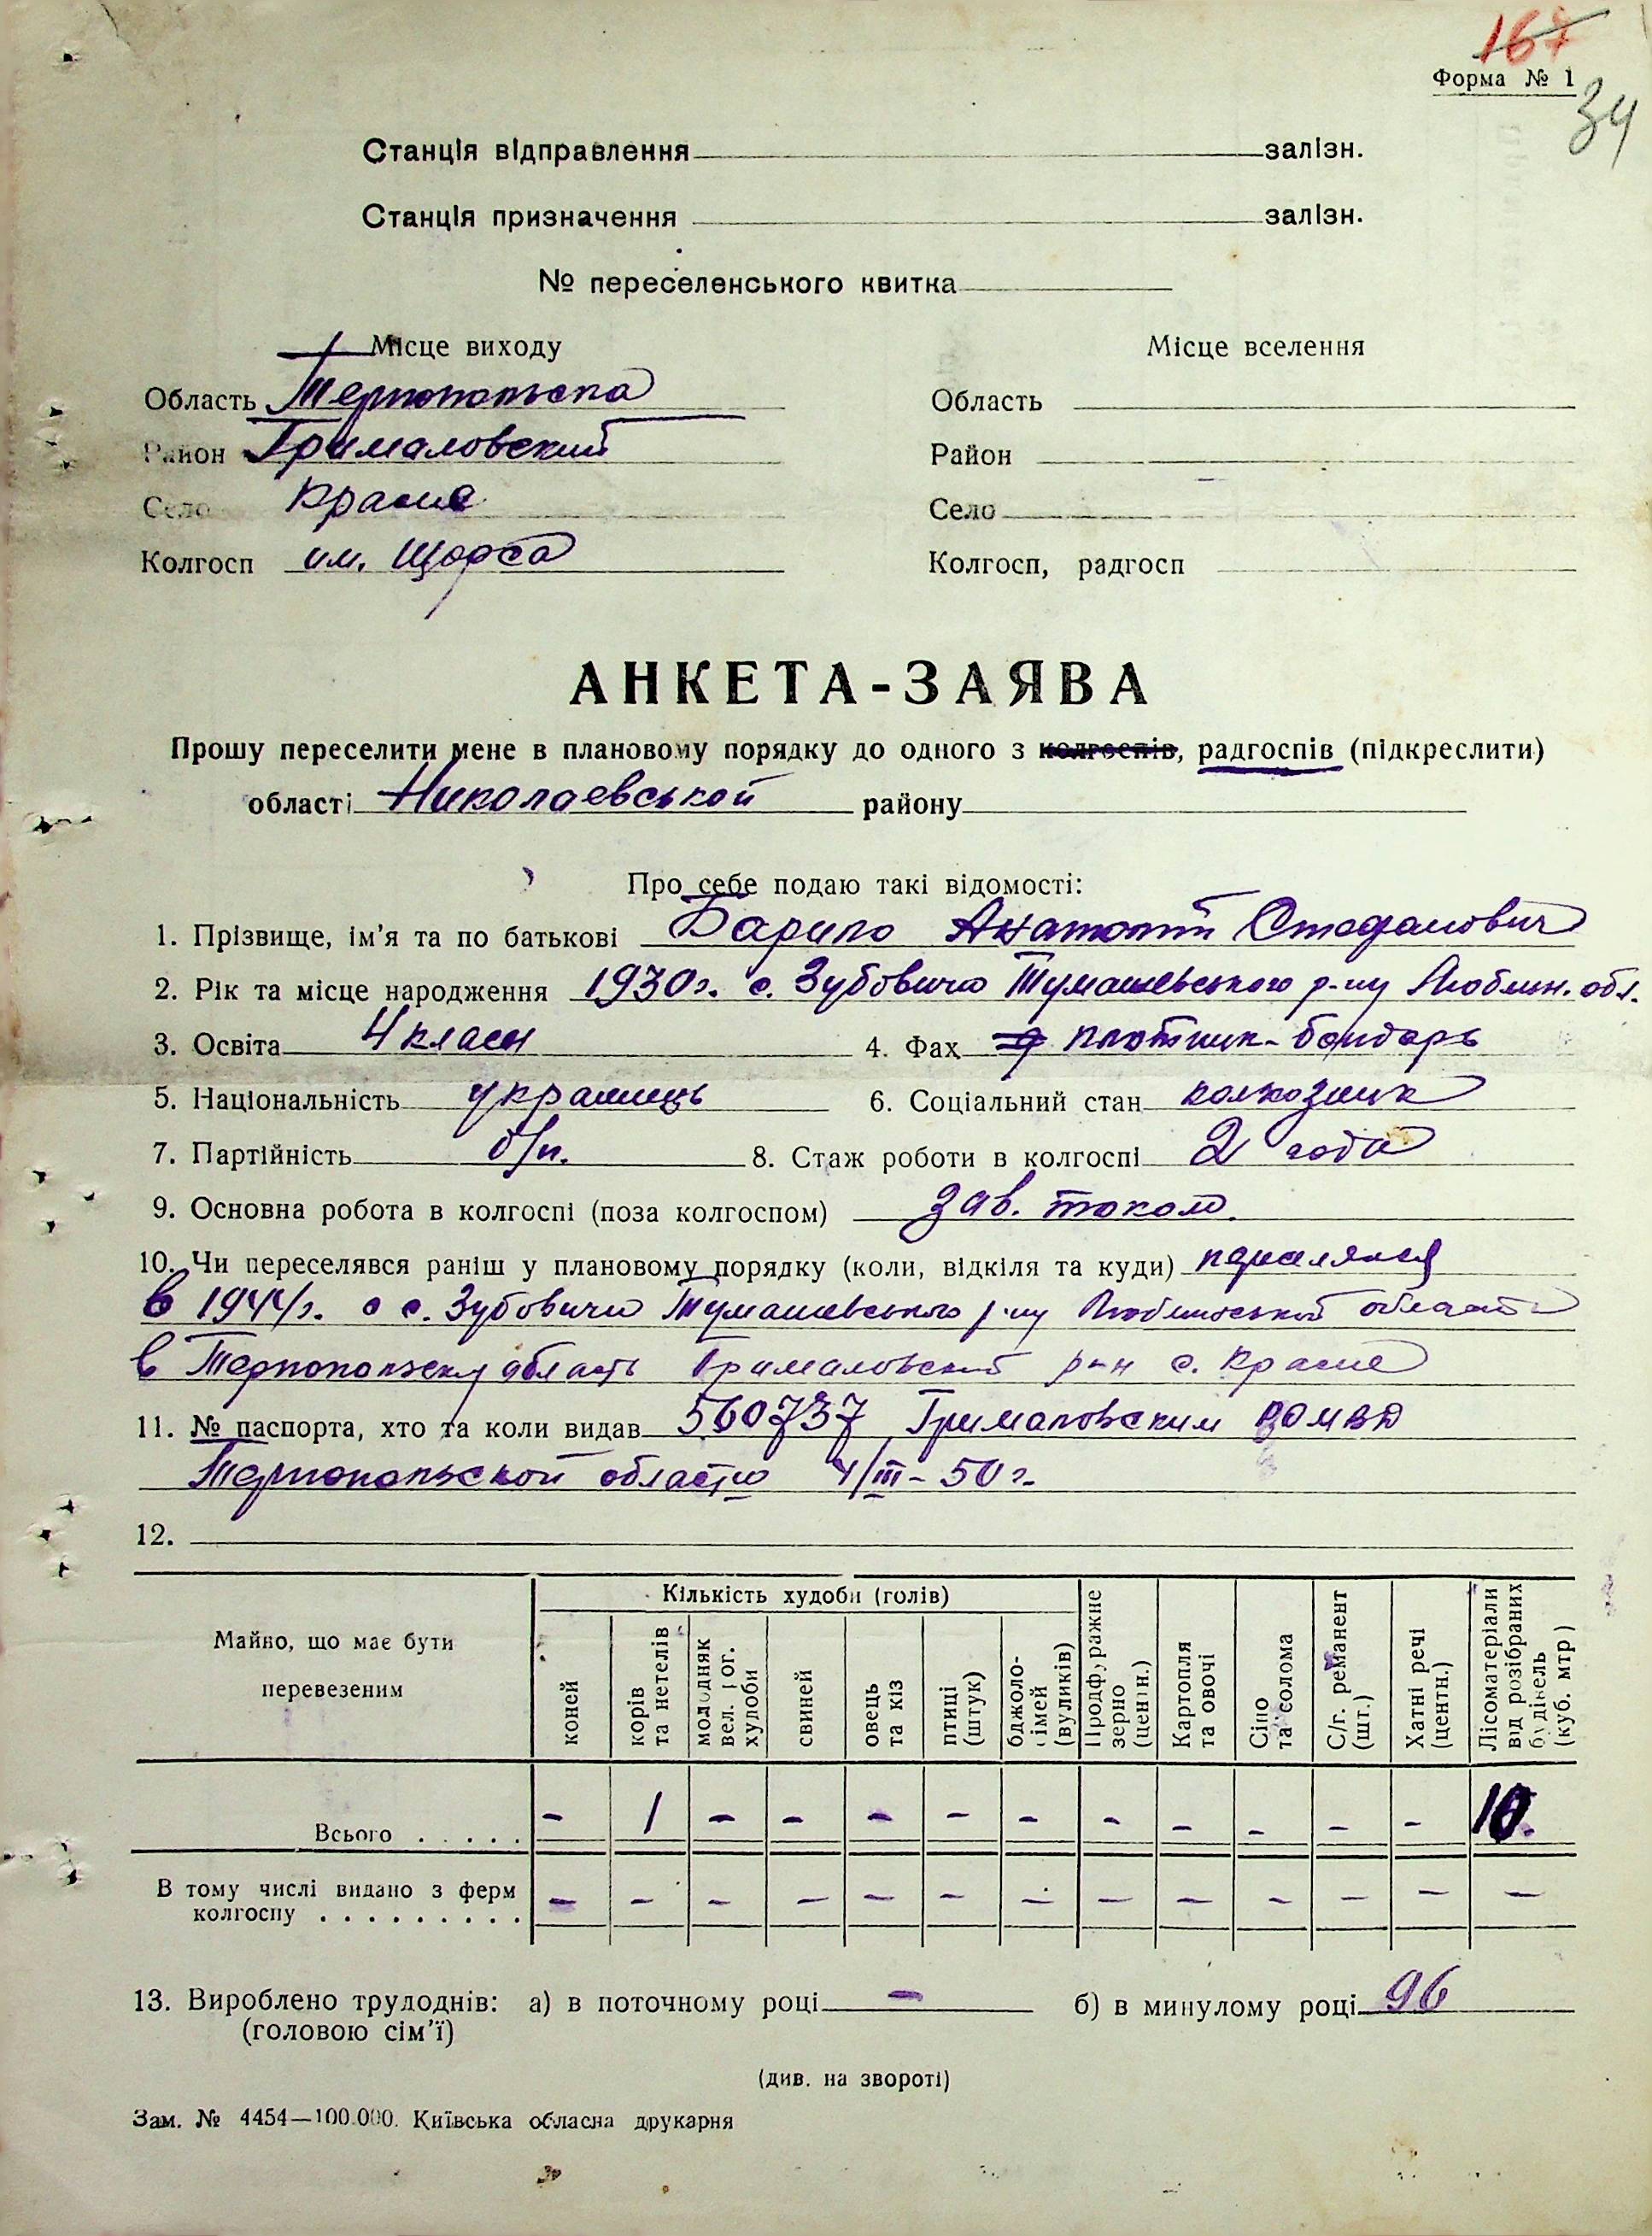 167
Форма № 1
34
Станція відправлення залізн.
Станція призначення залізн.
№ переселенського квитка
Місце виходу Місце вселення
Область Тернопольска Область
Район Грималовский Район
Село Красне Село
Колгосп им. Щорса Колгосп, радгосп
АНКЕТА-ЗАЯВА
Прошу переселити мене в плановому порядку до одного з колгоспів, радгоспів (підкреслити)
області Николаевськой району
Про себе подаю такі відомості:
1. Прізвище, ім'я та по батькові Барило Анатолій Стефанович
2. Рік та місце народження 1930 г. с. Зубовичи Тумашевського р-ну Люблин. обл.
3. Освіта 4 класи 4. Фах плотник-бондарь
5. Національність украинець 6. Соціальний стан колхозник
7. Партійність б/п. 8. Стаж роботи в колгоспі 2 года
9. Основна робота в колгоспі (поза колгоспом) зав. током.
10. Чи переселявся раніш у плановому порядку (коли, відкіля та куди) переселялся
в 1944 г. с с. Зубовичи Тумашевського р-ну Люблинськой области
в Тернопольску область Грималовский р-н с. Красне
11. № паспорта, хто та коли видав 560737 Грималовским РОМВД
Тернопольской области 4/III-50 г.
12.
Майно, що має бути перевезеним Кількість худоби (голів)
коней корів та нетелів молодняк вел. рог. худоби свиней овець та кіз птиці (штук) бджолосімей (вуликів) Продфуражне зерно (центн.) Картопля та овочі Сіно та солома С/г. реманент (шт.) Хатні речі (центн.) Лісоматеріали від розібраних будівель (куб. мтр)
Всього . . . . . - 1 - - - - - - - - - - 10.
В тому числі видано з ферм
колгоспу . . . . . . . . . - - - - - - - - - - - - -
13. Вироблено трудоднів: а) в поточному році - б) в минулому році 96
(головою сім'ї)
(див. на звороті)
Зам. № 4454—100.000. Київська обласна друкарня